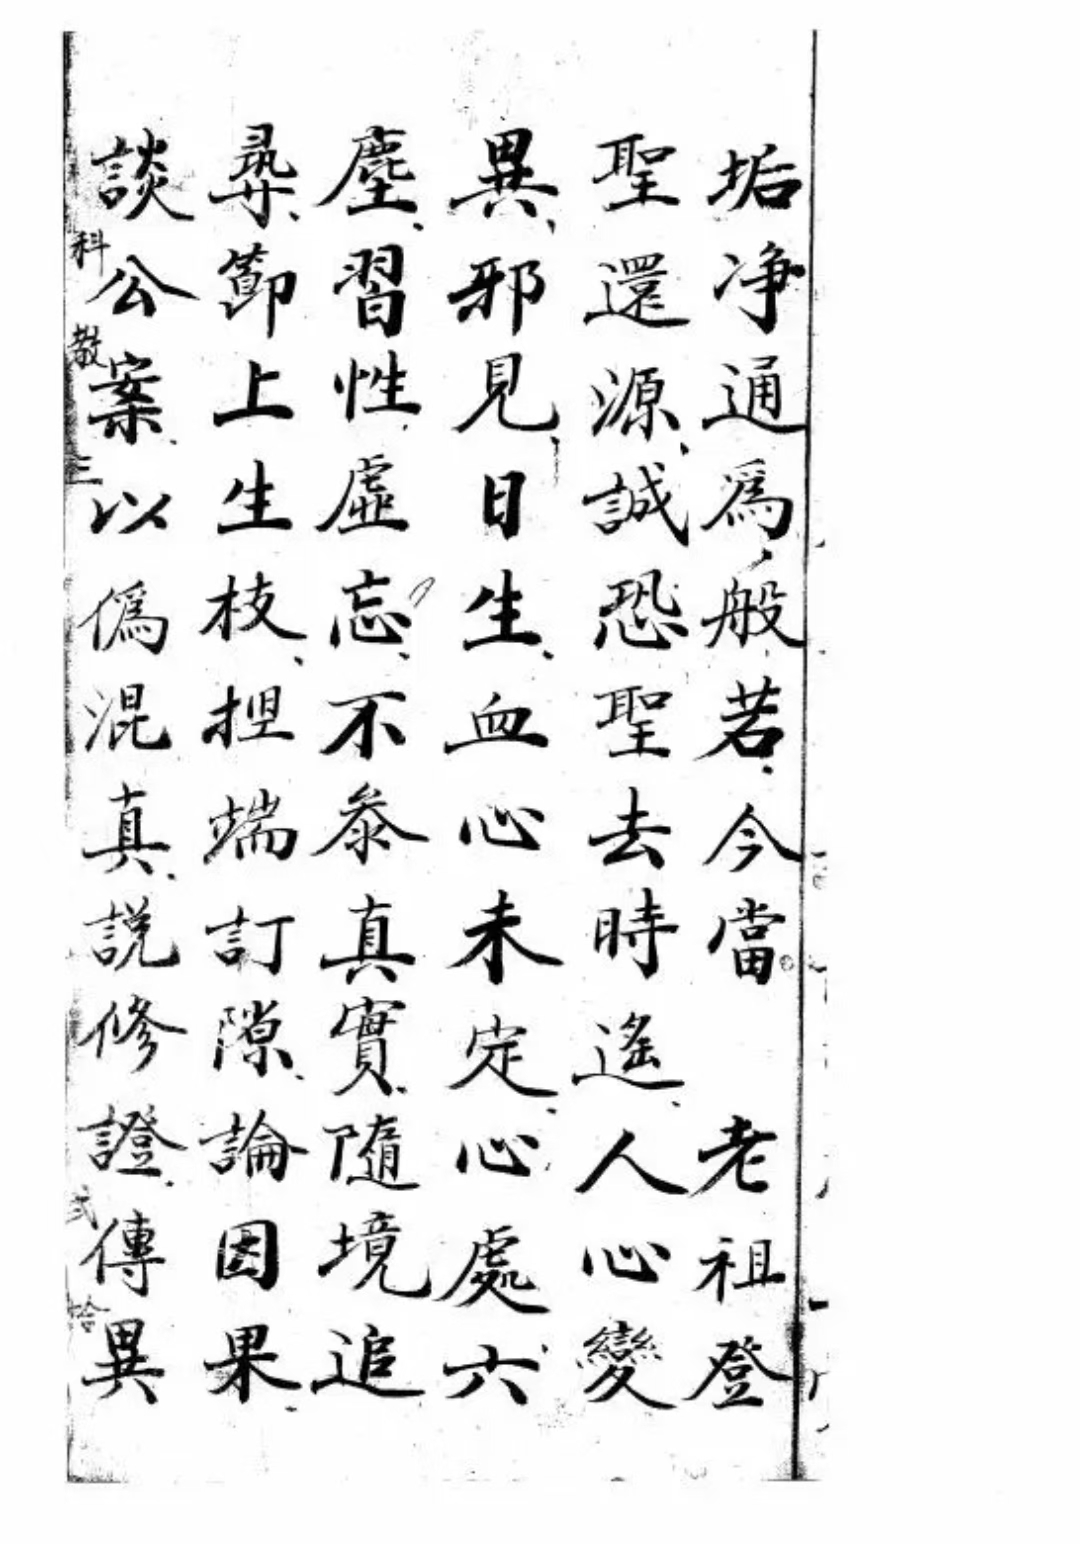 垢净通爲般若今當 老祖登
聖還源誠恐聖去時遙人心變
異邪見日生血心未定心處六
塵習性虛忘不叅真實隨境追
尋節上生枝揑端訂隙論因果
談公案以僞混真說修證傳異
科教三 弍拾